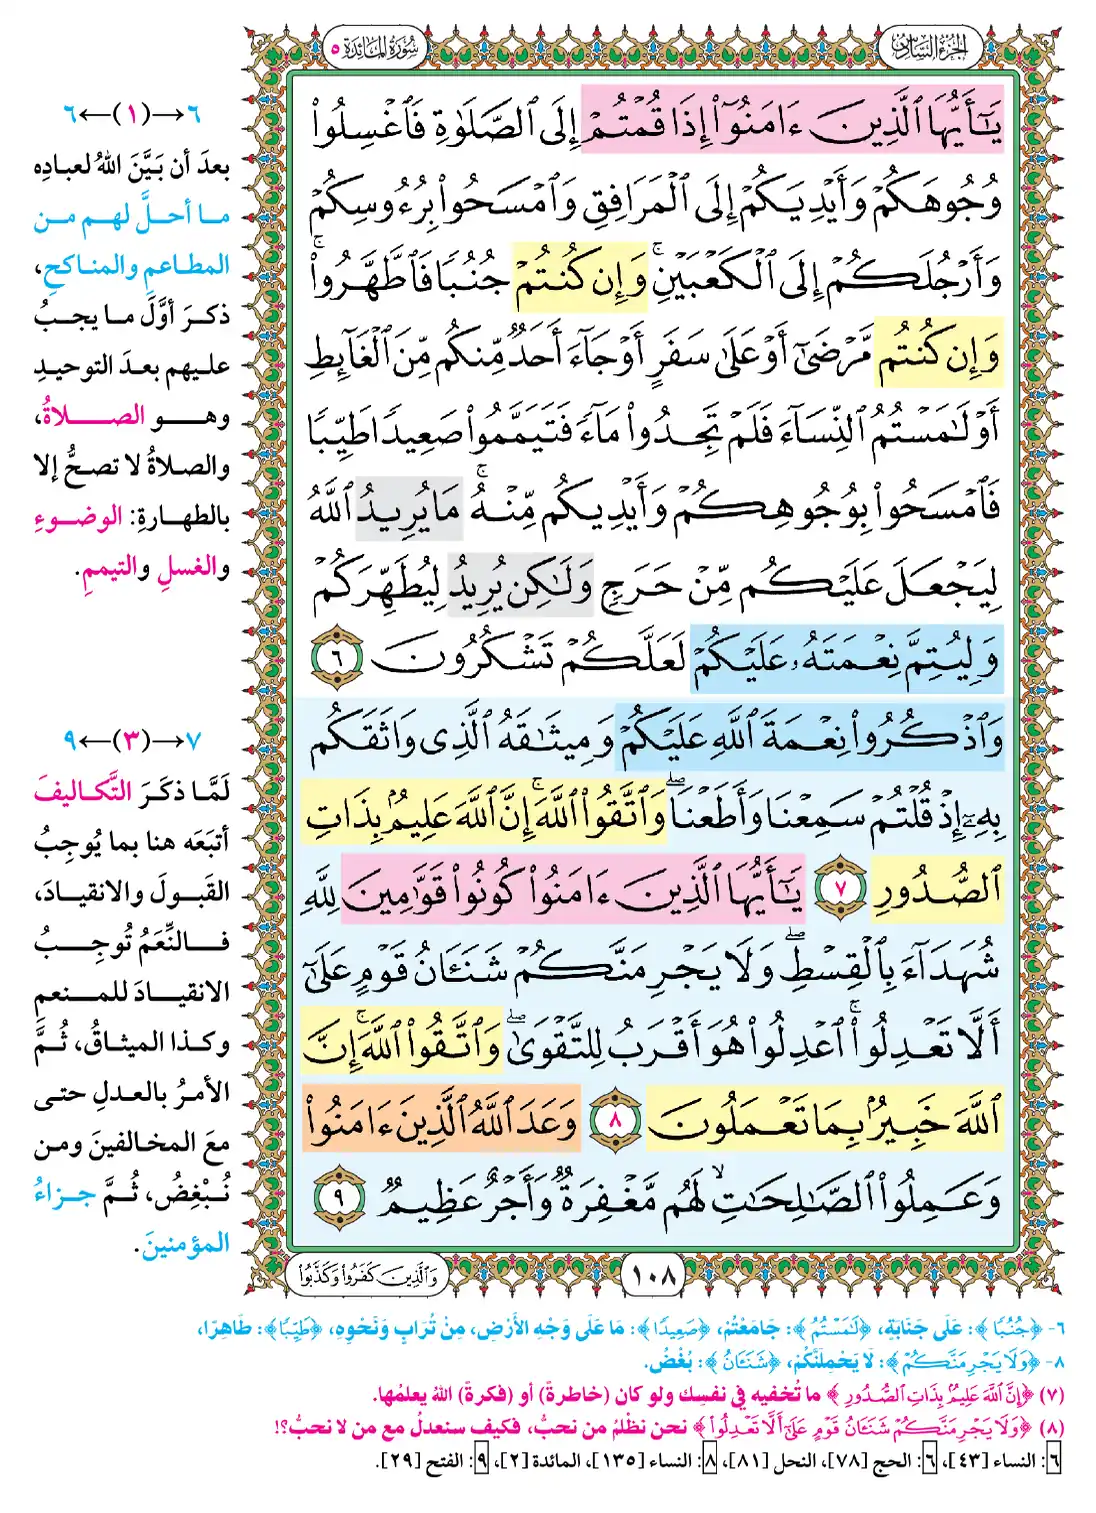 الجزء السادس
سورة المائدة ٥
يَٰٓأَيُّهَا ٱلَّذِينَ ءَامَنُوٓاْ إِذَا قُمۡتُمۡ إِلَى ٱلصَّلَوٰةِ فَٱغۡسِلُواْ
وُجُوهَكُمۡ وَأَيۡدِيَكُمۡ إِلَى ٱلۡمَرَافِقِ وَٱمۡسَحُواْ بِرُءُوسِكُمۡ
وَأَرۡجُلَكُمۡ إِلَى ٱلۡكَعۡبَيۡنِۚ وَإِن كُنتُمۡ جُنُبٗا فَٱطَّهَّرُواْۚ
وَإِن كُنتُم مَّرۡضَىٰٓ أَوۡ عَلَىٰ سَفَرٍ أَوۡ جَآءَ أَحَدٞ مِّنكُم مِّنَ ٱلۡغَآئِطِ
أَوۡ لَٰمَسۡتُمُ ٱلنِّسَآءَ فَلَمۡ تَجِدُواْ مَآءٗ فَتَيَمَّمُواْ صَعِيدٗا طَيِّبٗا
فَٱمۡسَحُواْ بِوُجُوهِكُمۡ وَأَيۡدِيكُم مِّنۡهُۚ مَا يُرِيدُ ٱللَّهُ
لِيَجۡعَلَ عَلَيۡكُم مِّنۡ حَرَجٖ وَلَٰكِن يُرِيدُ لِيُطَهِّرَكُمۡ
وَلِيُتِمَّ نِعۡمَتَهُۥ عَلَيۡكُمۡ لَعَلَّكُمۡ تَشۡكُرُونَ ٦
وَٱذۡكُرُواْ نِعۡمَةَ ٱللَّهِ عَلَيۡكُمۡ وَمِيثَٰقَهُ ٱلَّذِي وَاثَقَكُم
بِهِۦٓ إِذۡ قُلۡتُمۡ سَمِعۡنَا وَأَطَعۡنَاۖ وَٱتَّقُواْ ٱللَّهَۚ إِنَّ ٱللَّهَ عَلِيمُۢ بِذَاتِ
ٱلصُّدُورِ ٧ يَٰٓأَيُّهَا ٱلَّذِينَ ءَامَنُواْ كُونُواْ قَوَّٰمِينَ لِلَّهِ
شُهَدَآءَ بِٱلۡقِسۡطِۖ وَلَا يَجۡرِمَنَّكُمۡ شَنَـَٔانُ قَوۡمٍ عَلَىٰٓ
أَلَّا تَعۡدِلُواْۚ ٱعۡدِلُواْ هُوَ أَقۡرَبُ لِلتَّقۡوَىٰۖ وَٱتَّقُواْ ٱللَّهَۚ إِنَّ
ٱللَّهَ خَبِيرُۢ بِمَا تَعۡمَلُونَ ٨ وَعَدَ ٱللَّهُ ٱلَّذِينَ ءَامَنُواْ
وَعَمِلُواْ ٱلصَّٰلِحَٰتِ لَهُم مَّغۡفِرَةٞ وَأَجۡرٌ عَظِيمٞ ٩
١٠٨
وَٱلَّذِينَ كَفَرُواْ وَكَذَّبُواْ
٦←(١)→٦
بعدَ أن بَيَّنَ اللهُ لعبادِه
ما أحلَّ لهم من
المطاعمِ والمناكحِ،
ذكرَ أوَّلَ ما يجبُ
عليهم بعدَ التوحيدِ
وهو الصلاةُ،
والصلاةُ لا تصحُّ إلا
بالطهارةِ: الوضوءِ
والغسلِ والتيممِ.
٧←(٣)→٩
لَمَّا ذكَرَ التَّكاليفَ
أتبَعَه هنا بما يُوجِبُ
القَبولَ والانقيادَ،
فالنِّعَمُ تُوجِبُ
الانقيادَ للمنعمِ
وكذا الميثاقُ، ثُمَّ
الأمرُ بالعدلِ حتى
معَ المخالفينَ ومن
نُبْغِضُ، ثُمَّ جزاءُ
المؤمنينَ.
٦- ﴿جُنُبٗا﴾: عَلَى جَنَابَةٍ، ﴿لَٰمَسۡتُمُ﴾: جَامَعْتُمْ، ﴿صَعِيدٗا﴾: مَا عَلَى وَجْهِ الأَرْضِ، مِنْ تُرَابٍ وَنَحْوِهِ، ﴿طَيِّبٗا﴾: طَاهِرًا،
٨- ﴿وَلَا يَجۡرِمَنَّكُمۡ﴾: لَا يَحْمِلَنَّكُمْ، ﴿شَنَـَٔانُ﴾: بُغْضُ.
(٧) ﴿إِنَّ ٱللَّهَ عَلِيمُۢ بِذَاتِ ٱلصُّدُورِ﴾ ما تُخفيه في نفسِك ولو كان (خاطرةً) أو (فكرةً) اللهُ يعلمُها.
(٨) ﴿وَلَا يَجۡرِمَنَّكُمۡ شَنَـَٔانُ قَوۡمٍ عَلَىٰٓ أَلَّا تَعۡدِلُواْ﴾ نحن نظْلمُ من نحبُّ، فكيف سنعدلُ مع من لا نحبُّ؟!
٦: النساء [٤٣]، ٦: الحج [٧٨]، النحل [٨١]، ٨: النساء [١٣٥]، المائدة [٢]، ٩: الفتح [٢٩].